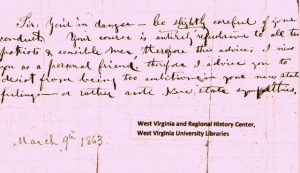 Sir. You're in danger — be slightly careful of your
conduct. Your course is entirely repulsive to all true
patriots & sensible men, therefore this advice. I view
you as a personal friend therefore I advise you to
desist from being too cautious in your new state
feelings — or rather anti New state sympathies,
March 9th 1863.
West Virginia and Regional History Center,
West Virginia University Libraries